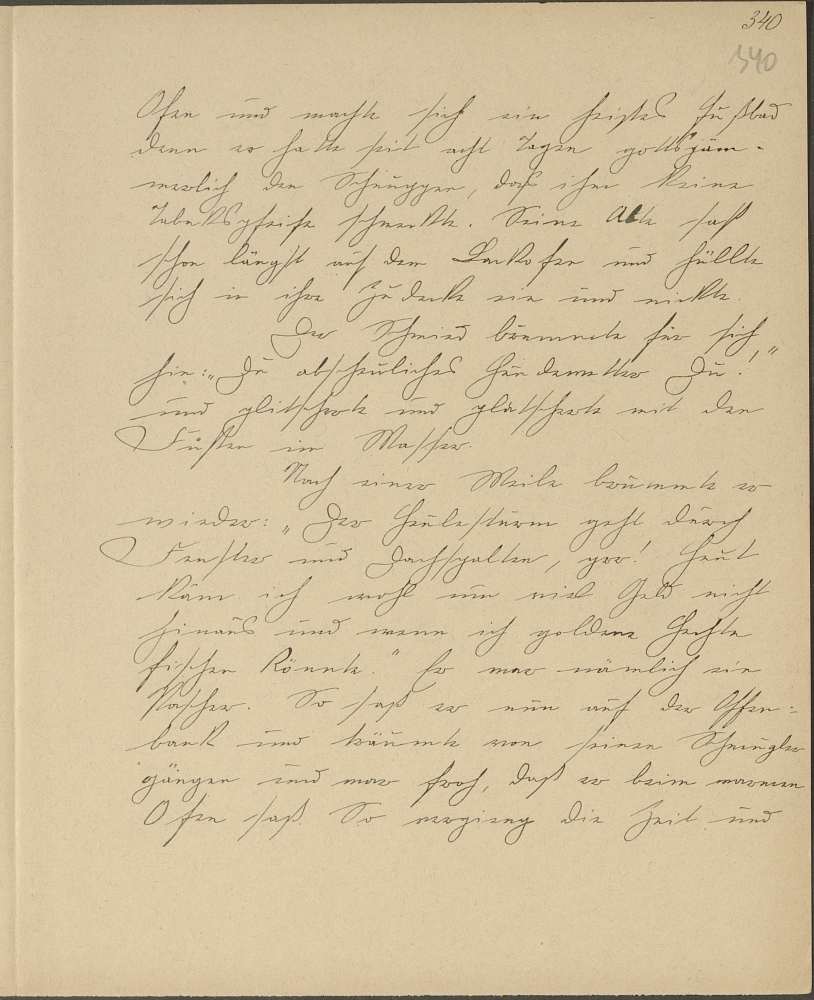 340
340
Ofen und machte sich ein heißes Fußbad
denn er hatte seit acht Tagen gottsjäm-
merlich den Schnuppen, daß ihm keine
Tabakspfeife schmeckte. Seine Alte saß
schon längst auf dem Backofen und hüllte
sich in ihre Zudecke ein und nickte.
Der Schmied brummte für sich
hin: „Du abscheuliches Hundewetter Du!"
und glitscherte und platscherte mit den
Füßen im Wasser.
Nach einer Weile brummte er
wieder: „Der Heulesturm geht durch
Fenster und Dachspalten, grr! Heut
käm ich wohl um viel Geld nicht
hinaus und wenn ich goldene Hechte
fischen könnte." Er war nämlich ein
So saß er nun auf der Offen:
bank und träumte von seinen Schmugler
gängen und war froh, daß er beim warmen
Ofen saß. So verging die Zeit und